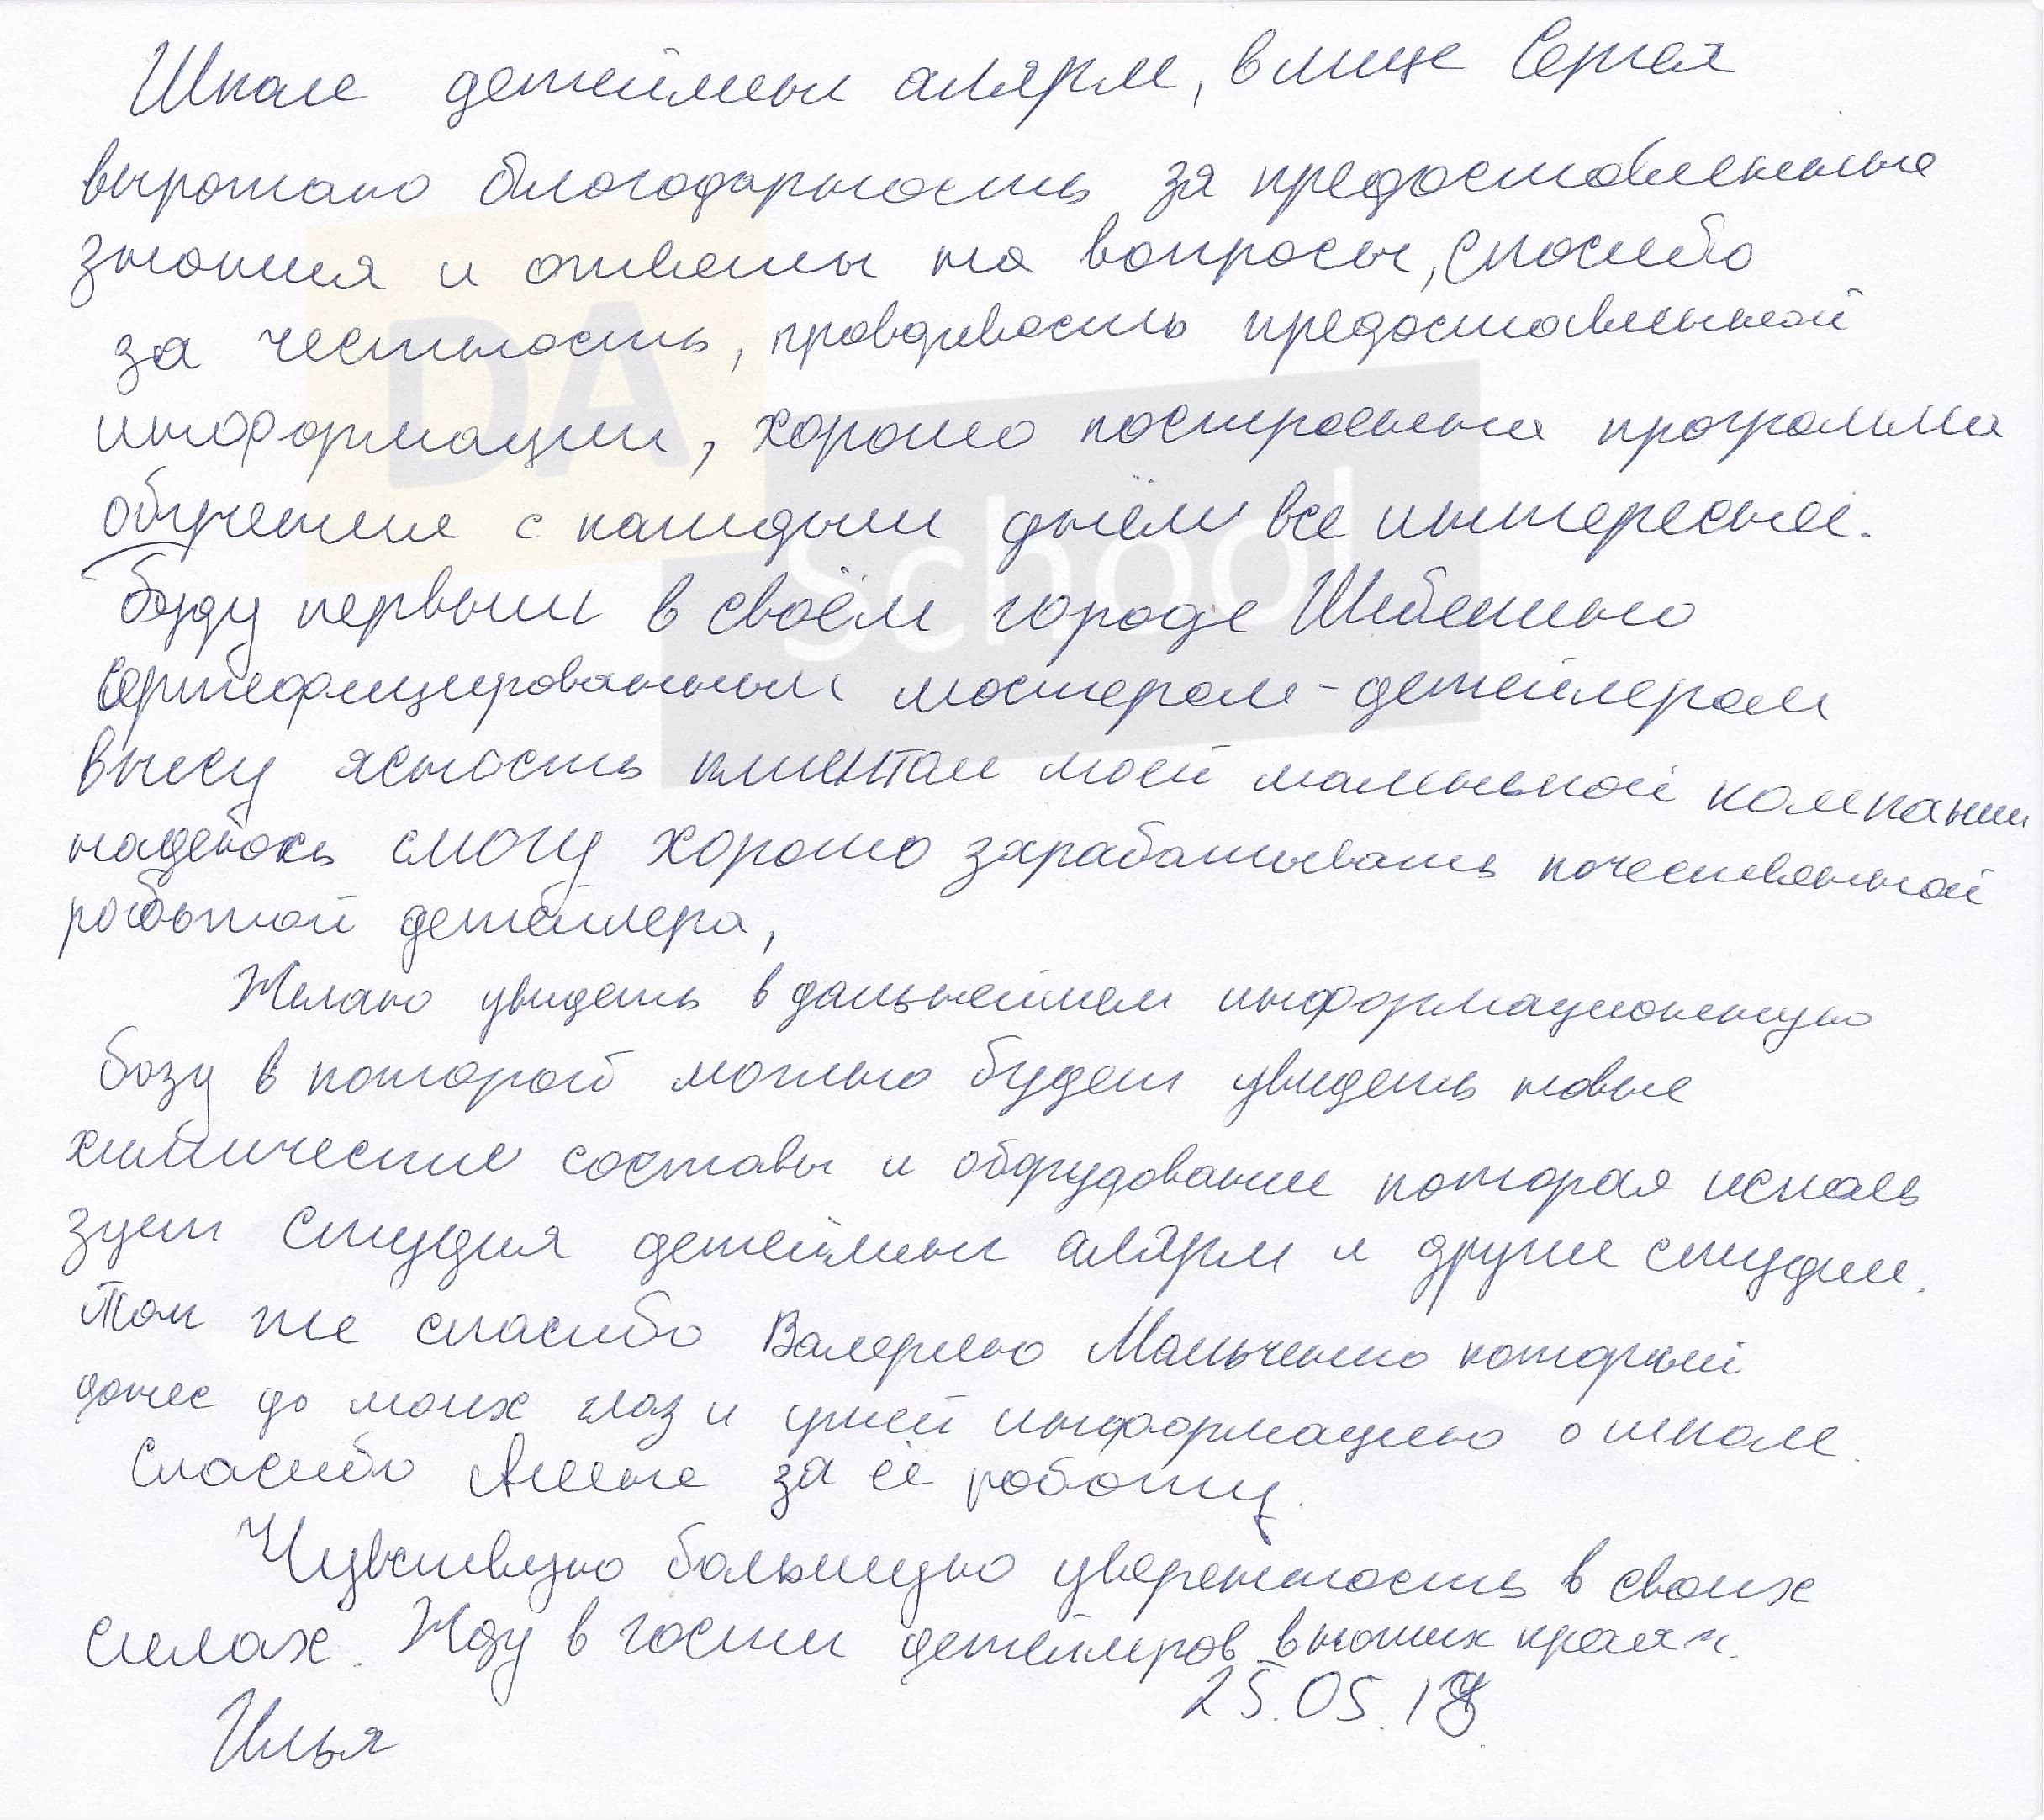 Школе детейлинг алярм, в лице Сергея
выражаю благодарность за предоставленные
знания и ответы на вопросы, спасибо
за честность, правдивость предоставленной
информации, хорошо построеная программа
обучения с каждым днём все интересней.
Буду первым в своём городе Шебекино
сертифицированным мастером-детейлером
внесу ясность клиентам моей маленькой компании
надеюсь смогу хорошо зарабатывать качественной
работой детейлера,
Желаю увидеть в дальнейшем информационную
базу в которой можно будет увидеть новые
химические составы и оборудование которая исполь
зует студия детейлинг алярм и другие студии.
Так же спасибо Валерию Мальченко который
донес до моих глаз и ушей информацию о школе.
Спасибо Алене за её работу.
Чувствую большую уверенность в своих
силах. Жду в гости детейлеров в наших краях.
25.05.18
Илья
DA
school